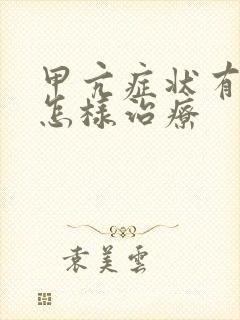 甲亢症状有
怎様治療
袁美雲